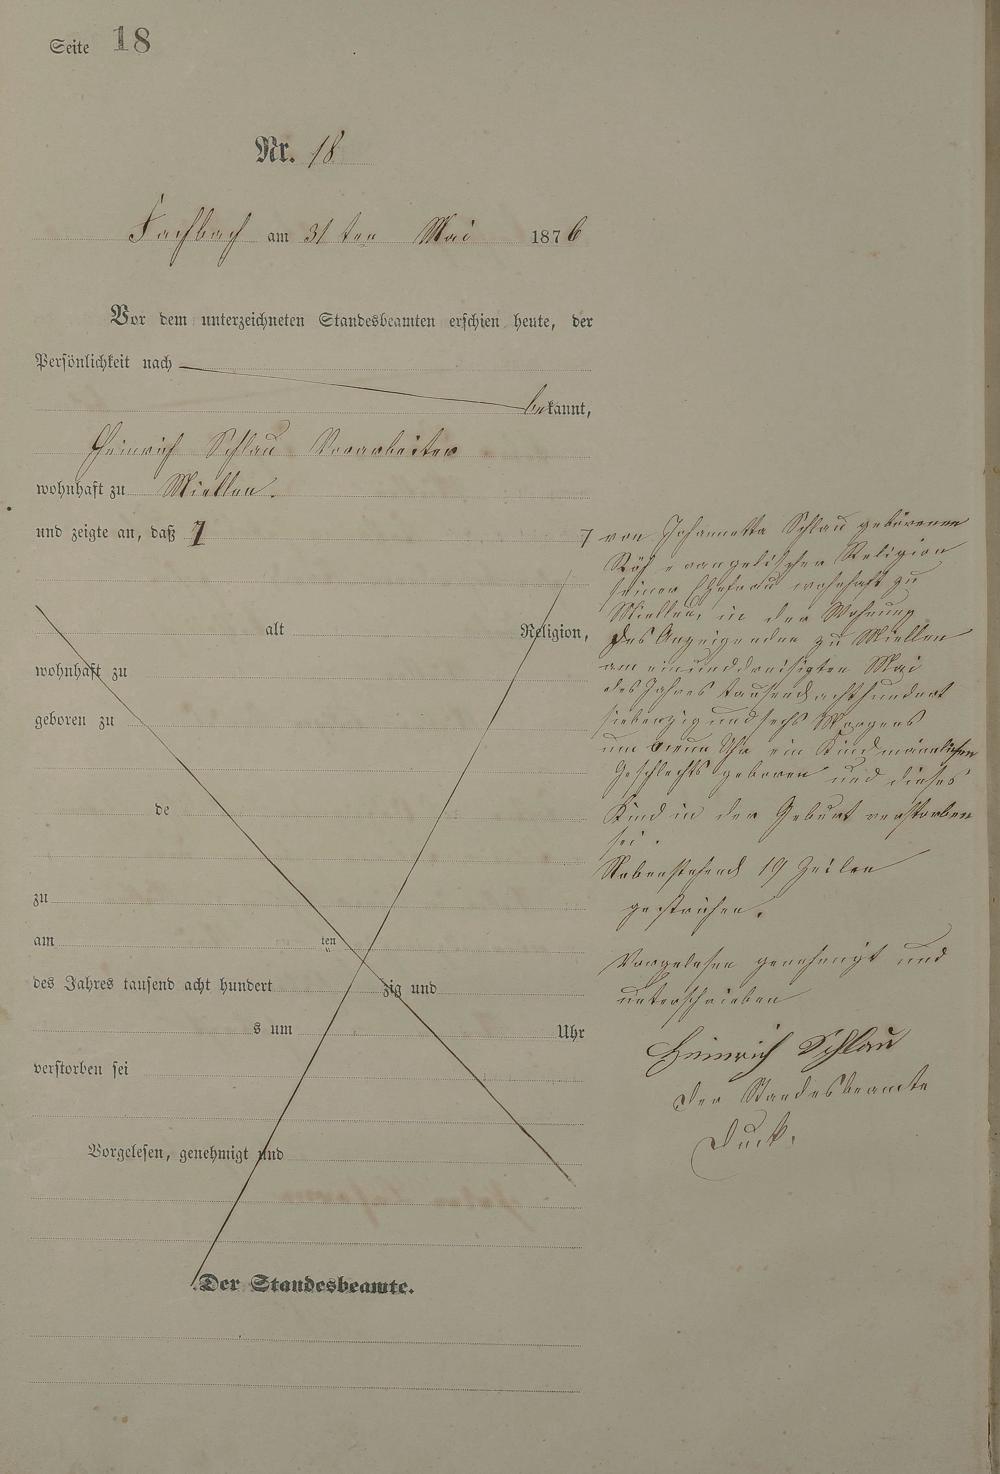 Seite 18
Nr. 18
Fachbach am 31 ten Mai 1876
Vor dem unterzeichneten Standesbeamten erschien heute, der
Persönlichkeit nach
bekannt,
Heinrich Schlau Vorarbeiter
wohnhaft zu Miellen.
und zeigte an, daß
alt Religion,
wohnhaft zu
geboren zu
de
zu
am ten
des Jahres tausend acht hundert zig und
s um Uhr
verstorben sei
Vorgelesen, genehmigt und
Der Standesbeamte.
von Johannetta Schlau geborenen
evangelischer Religion
seiner Ehefrau wohnhaft zu
Miellen, in der Wohnung
des Anzeigenden zu Miellen
am einunddreisigten Mai
des Jahres tausend achthundert
siebenzig und sechs Morgens
um neun Uhr ein Kind männlichen
Geschlechts geboren und dieses
Kind in der Geburt verstorben
sei.
Nebenstehend 19 Zeilen
gestrichen.
Vorgelesen genehmigt und
unterschrieben
Heinrich Schlau
Der Standesbeamte